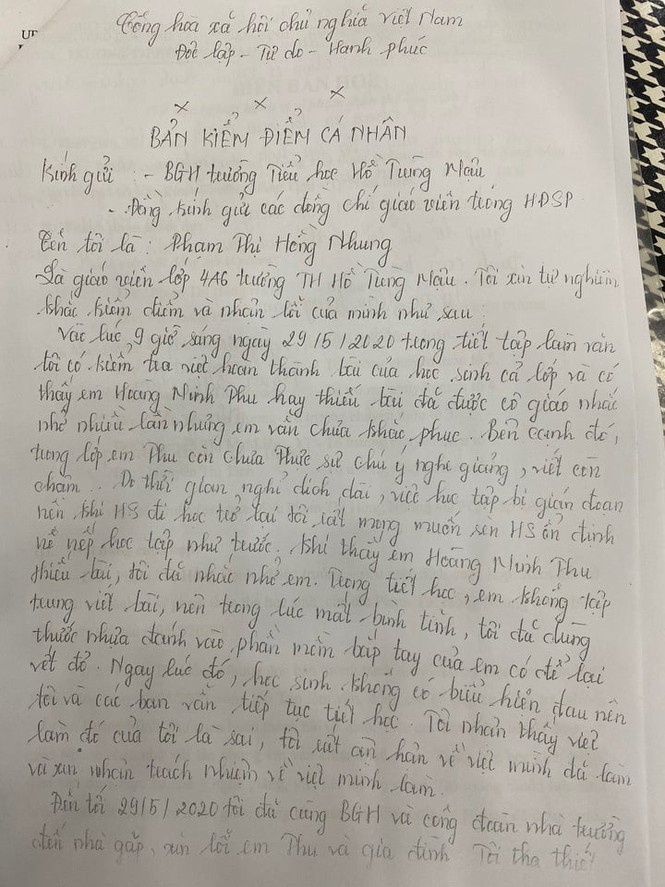 UE
Cộng hòa xã hội chủ nghĩa Việt Nam
Độc lập - Tự do - Hạnh phúc
BẢN KIỂM ĐIỂM CÁ NHÂN
Kính gửi : - BGH trường Tiểu học Hồ Tùng Mậu
- Đồng kính gửi các đồng chí giáo viên trong HĐSP
Tên tôi là : Phạm Thị Hồng Nhung
Là giáo viên lớp 4A6 trường TH Hồ Tùng Mậu. Tôi xin tự nghiêm
khắc kiểm điểm và nhận lỗi của mình như sau:
Vào lúc 9 giờ sáng ngày 29/5/2020 trong tiết tập làm văn
tôi có kiểm tra việc hoàn thành bài của học sinh cả lớp và có
thấy em Hoàng Minh Thu hay thiếu bài đã được cô giáo nhắc
nhở nhiều lần nhưng em vẫn chưa khắc phục. Bên cạnh đó,
trong lớp em Thu còn chưa thực sự chú ý nghe giảng, viết còn
chậm. Do thời gian nghỉ dịch dài, việc học tập bị gián đoạn
nên khi HS đi học trở lại tôi rất mong muốn sen HS ổn định
nề nếp học tập như trước. Khi thấy em Hoàng Minh Thu
thiếu bài, tôi đã nhắc nhở em. Trong tiết học, em không tập
trung viết bài, nên trong lúc mất bình tĩnh, tôi đã dùng
thước nhựa đánh vào phần mềm bắp tay của em có để lại
vết đỏ. Ngay lúc đó, học sinh không có biểu hiện đau nên
tôi và các bạn vẫn tiếp tục tiết học. Tôi nhận thấy việc
làm đó của tôi là sai, tôi rất ân hận về việc mình đã làm
và xin nhận trách nhiệm về việc mình làm.
Đến tối 29/5/2020 tôi đã cùng BGH và công đoàn nhà trường
đến nhà gặp, xin lỗi em Thu và gia đình Tôi tha thiết